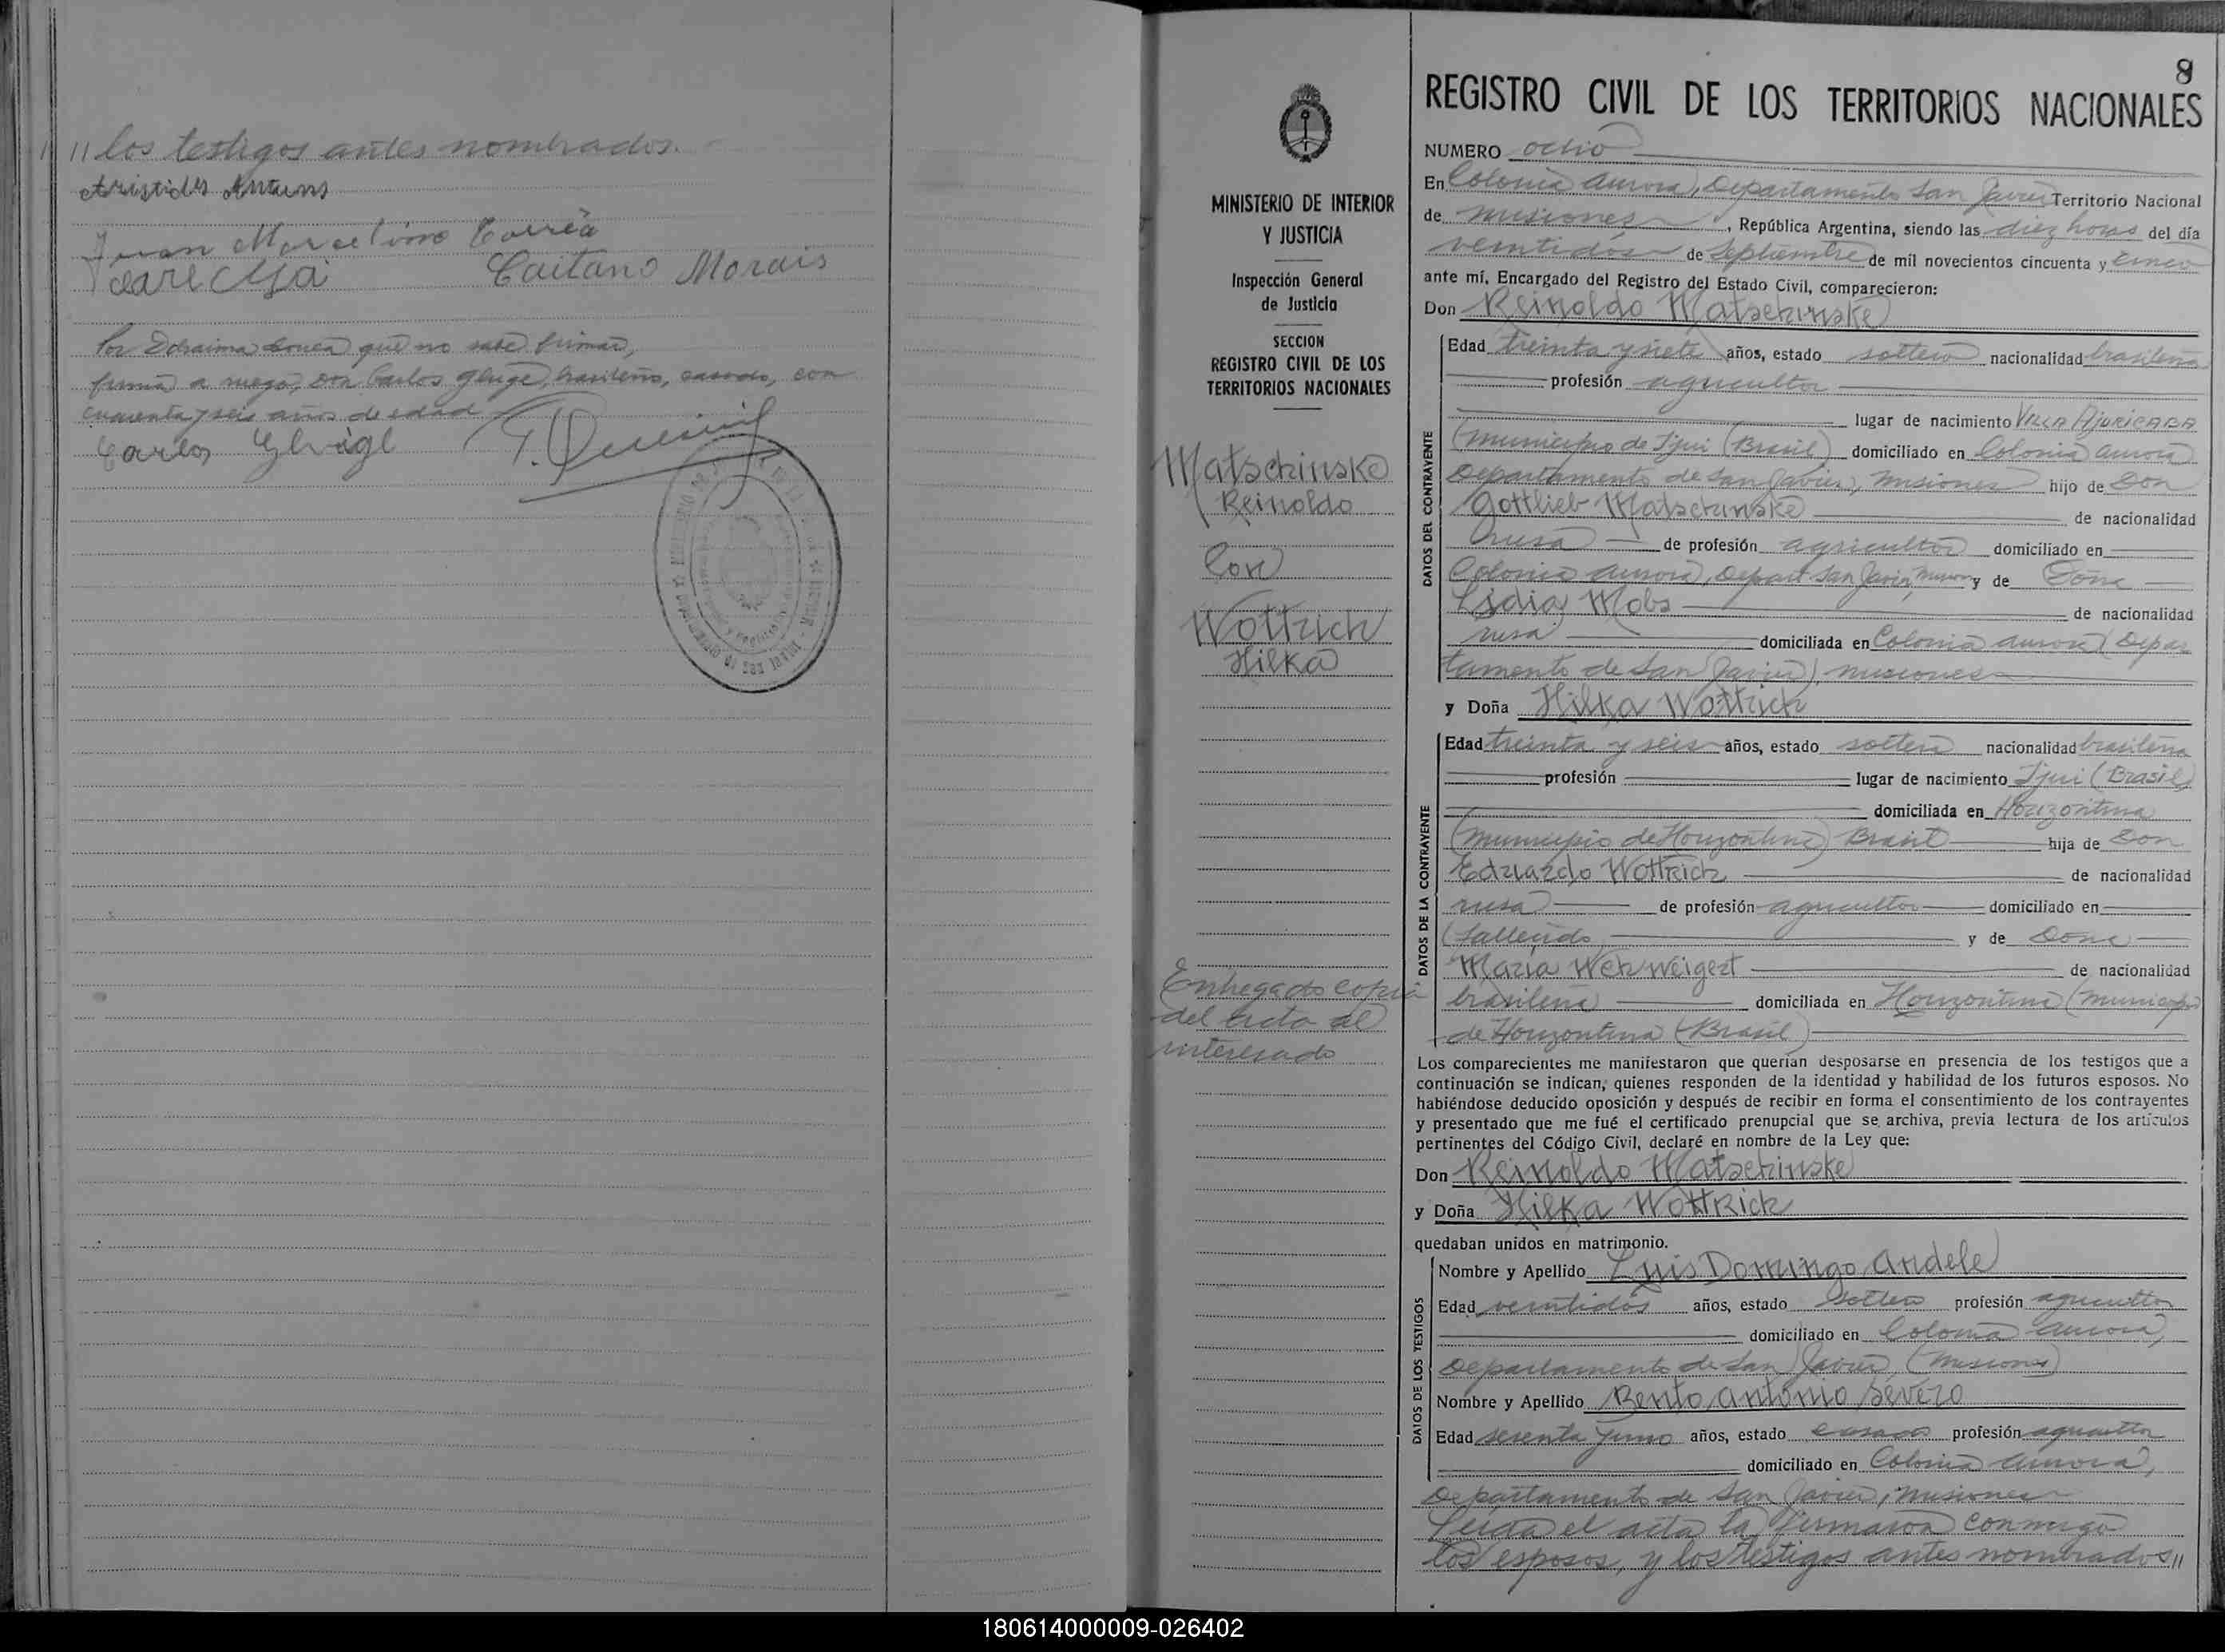 // los testigos antes nombrados.
Aristides Antunes
Juan Marcelino Corrêa
Caitano Morais
Por Edraima Souza que no sabe firmar,
firma a ruego, Don Carlos Gluge, brasileño, casado, con
cuarenta y seis años de edad
Carlos
8
REGISTRO CIVIL DE LOS TERRITORIOS NACIONALES
MINISTERIO DE INTERIOR
Y JUSTICIA
Inspección General
de Justicia
SECCION
REGISTRO CIVIL DE LOS
TERRITORIOS NACIONALES
Matschinske
Reinoldo
Con
Wottrich
Hilka
Entregado copia
del acta al
interesado
NUMERO ocho
En Colonia Aurora, Departamento San Javier Territorio Nacional
de Misiones, República Argentina, siendo las diez horas del día
veintidós de Septiembre de mil novecientos cincuenta y cinco
ante mí, Encargado del Registro del Estado Civil, comparecieron:
Don Reinoldo Matschinske
DATOS DEL CONTRAYENTE
Edad treinta y siete años, estado soltero nacionalidad brasileña
profesión agricultor
lugar de nacimiento Villa Ajuricaba
(Municipio de Ijui (Brasil) domiciliado en Colonia Aurora
Departamento de San Javier, Misiones hijo de Don
Gottlieb Matschinske de nacionalidad
rusa de profesión agricultor domiciliado en
Colonia Aurora, Depart. San Javier, Misiones y de Doña
Lidia Mobs de nacionalidad
rusa domiciliada en Colonia Aurora (Depar
tamento de San Javier) Misiones
y Doña Hilka Wottrich
DATOS DE LA CONTRAYENTE
Edad treinta y seis años, estado soltera nacionalidad brasileña
profesión lugar de nacimiento Ijui (Brasil)
domiciliada en Horizontina
(Municipio de Horizontina) Brasil hija de Don
Eduardo Wottrich de nacionalidad
rusa de profesión agricultor domiciliado en
(fallecido y de Doña
Maria Wehweigert de nacionalidad
brasileña domiciliada en Horizontina (Municipio
de Horizontina (Brasil)
Los comparecientes me manifestaron que querían desposarse en presencia de los testigos que a
continuación se indican, quienes responden de la identidad y habilidad de los futuros esposos. No
habiéndose deducido oposición y después de recibir en forma el consentimiento de los contrayentes
y presentado que me fué el certificado prenupcial que se archiva, previa lectura de los artículos
pertinentes del Código Civil, declaré en nombre de la Ley que:
Don Reinoldo Matschinske
y Doña Hilka Wottrich
quedaban unidos en matrimonio.
DATOS DE LOS TESTIGOS
Nombre y Apellido Luis Domingo Andele
Edad veintidós años, estado soltero profesión agricultor
domiciliado en Colonia Aurora,
Departamento de San Javier, (Misiones)
Nombre y Apellido Bento Antonio Severo
Edad sesenta y uno años, estado casado profesión agricultor
domiciliado en Colonia Aurora,
Departamento de San Javier, Misiones
Leída el acta la firmaron conmigo
los esposos, y los testigos antes nombrados //
180614000009-026402